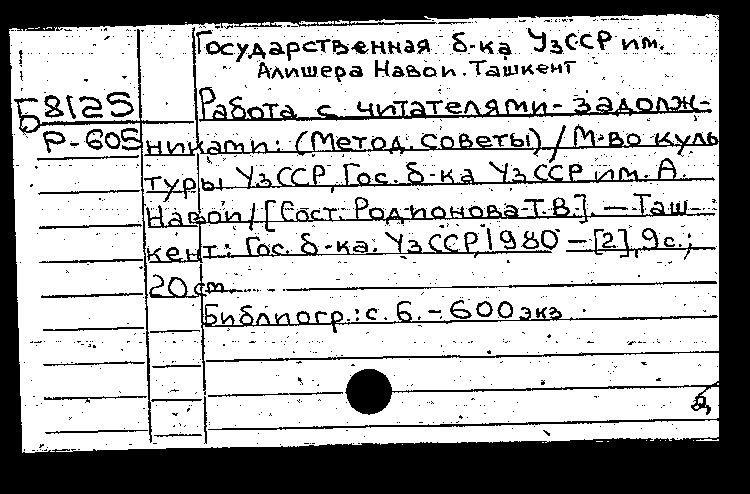 Государственная б-ка УзССР им.
Алишера Навои. Ташкент
Б8125
Р-605
Работа с читателями-задолж-
никами: (Метод. советы) / М-во куль
туры УзССР, Гос. б-ка УзССР им. А.
Навои / [Сост. Родионова Т.В.]. — Таш-
кент: Гос. б-ка. УзССР, 1980 — [2], 9 с.;
20 см.
Библиогр.: с. 6. — 600 экз